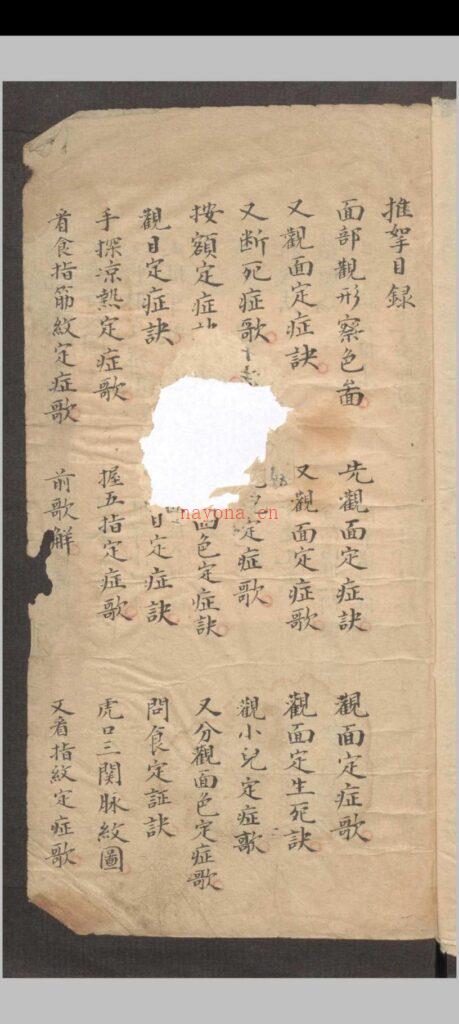 推拏目録
面部觀形察色啚 先觀面定症訣 觀面定症歌
又觀面定症訣 又觀面定症歌 觀面定生死訣
又断死症歌 定症歌 觀小兒定症歌
按額定症 面色定症訣 又分觀面色定症歌
觀目定症訣 目定症訣 問食定証訣
手探凉熱定症歌 握五指定症歌 虎口三関脉紋圖
看食指筋紋定症歌 前歌解 又看指紋定症歌
nayona.cn